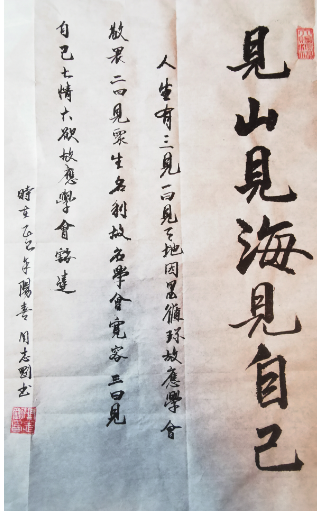 見山見海見自己
人生有三見一曰見天地因果循环故應學會
敬畏二曰見衆生名利故名學會寬容三曰見
自己七情六欲故應學會豁達
時在乙巳年陽春周志劉书